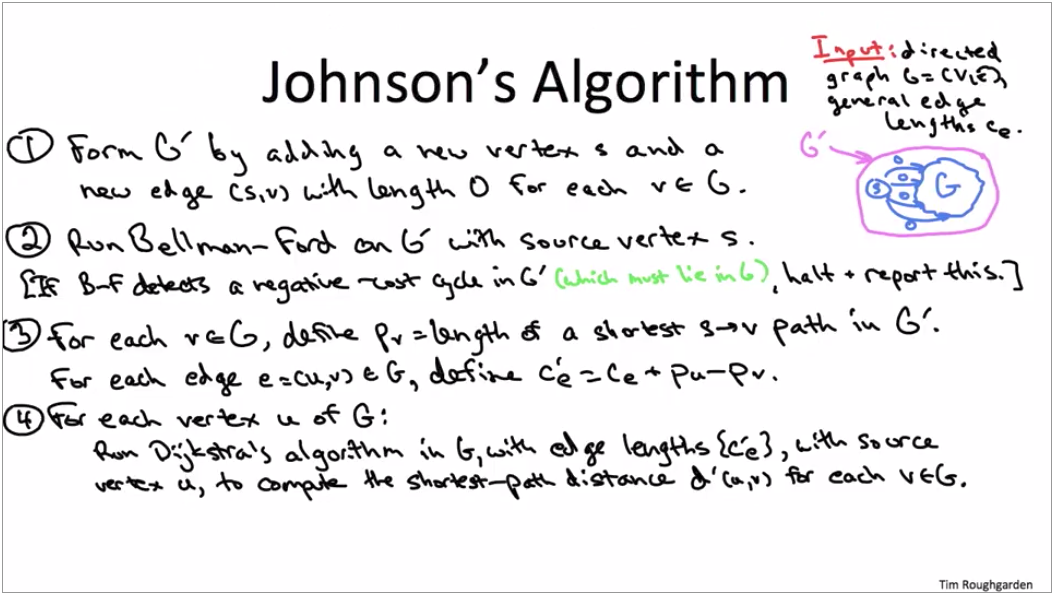 Johnson's Algorithm
Input: directed
graph G=(V,E),
general edge
lengths ce.
① Form G' by adding a new vertex s and a
new edge (s,v) with length 0 for each v∈G.
G'
s
0
0
0
0
G
② Run Bellman-Ford on G' with source vertex s.
[If B-F detects a negative-cost cycle in G' (which must lie in G), halt + report this.]
③ For each v∈G, define pv = length of a shortest s→v path in G'.
For each edge e=(u,v)∈G, define c'e = ce + pu - pv.
④ For each vertex u of G:
Run Dijkstra's algorithm in G, with edge lengths {c'e}, with source
vertex u, to compute the shortest-path distance d'(u,v) for each v∈G.
Tim Roughgarden